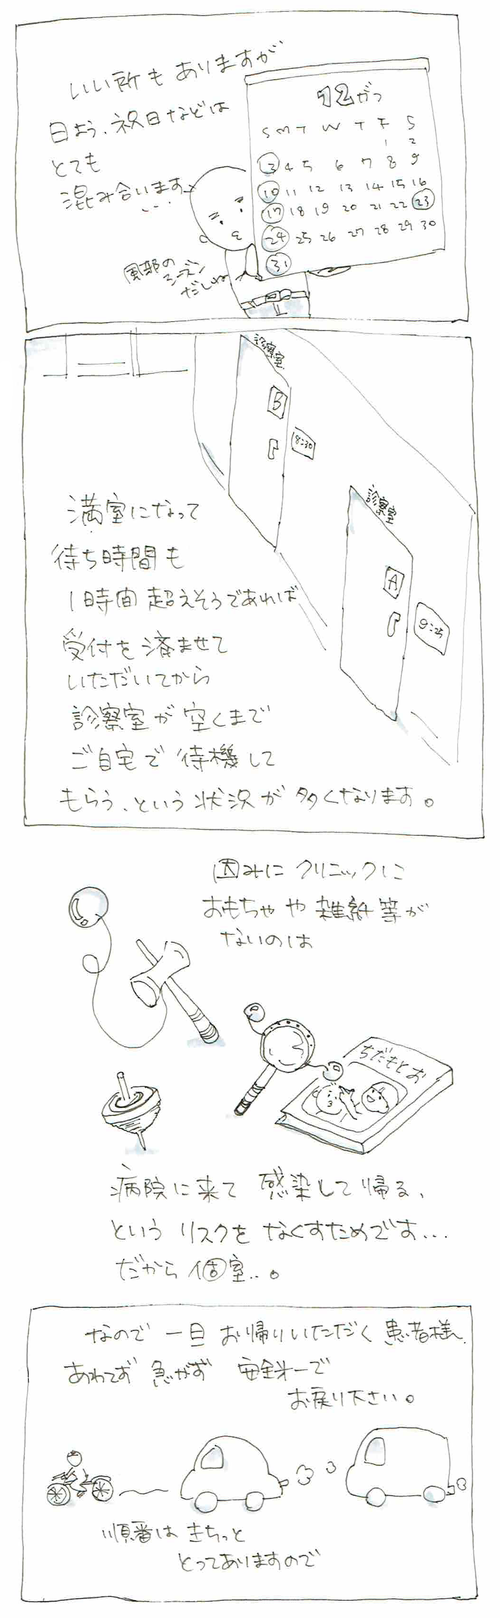 いい所もありますが
日よう、祝日などは
とても
混み合います…
風邪の
シーズン
だしね
12がつ
S M T W T F S
1 2
3 4 5 6 7 8 9
10 11 12 13 14 15 16
17 18 19 20 21 22 23
24 25 26 27 28 29 30
31
診察室
B
8:30
診察室
A
9:25
満室になって
待ち時間も
1時間超えそうであれば
受付を済ませて
いただいてから
診察室が空くまで
ご自宅で待機して
もらう、という状況が多くなります。
因みにクリニックに
おもちゃや雑紙等が
ないのは
ちだもとお
病院に来て感染して帰る、
というリスクをなくすためです…
だから個室..。
なので一旦お帰りいただく患者様、
あわてず急がず安全第一で
お戻り下さい。
順番はきちっと
とってありますので